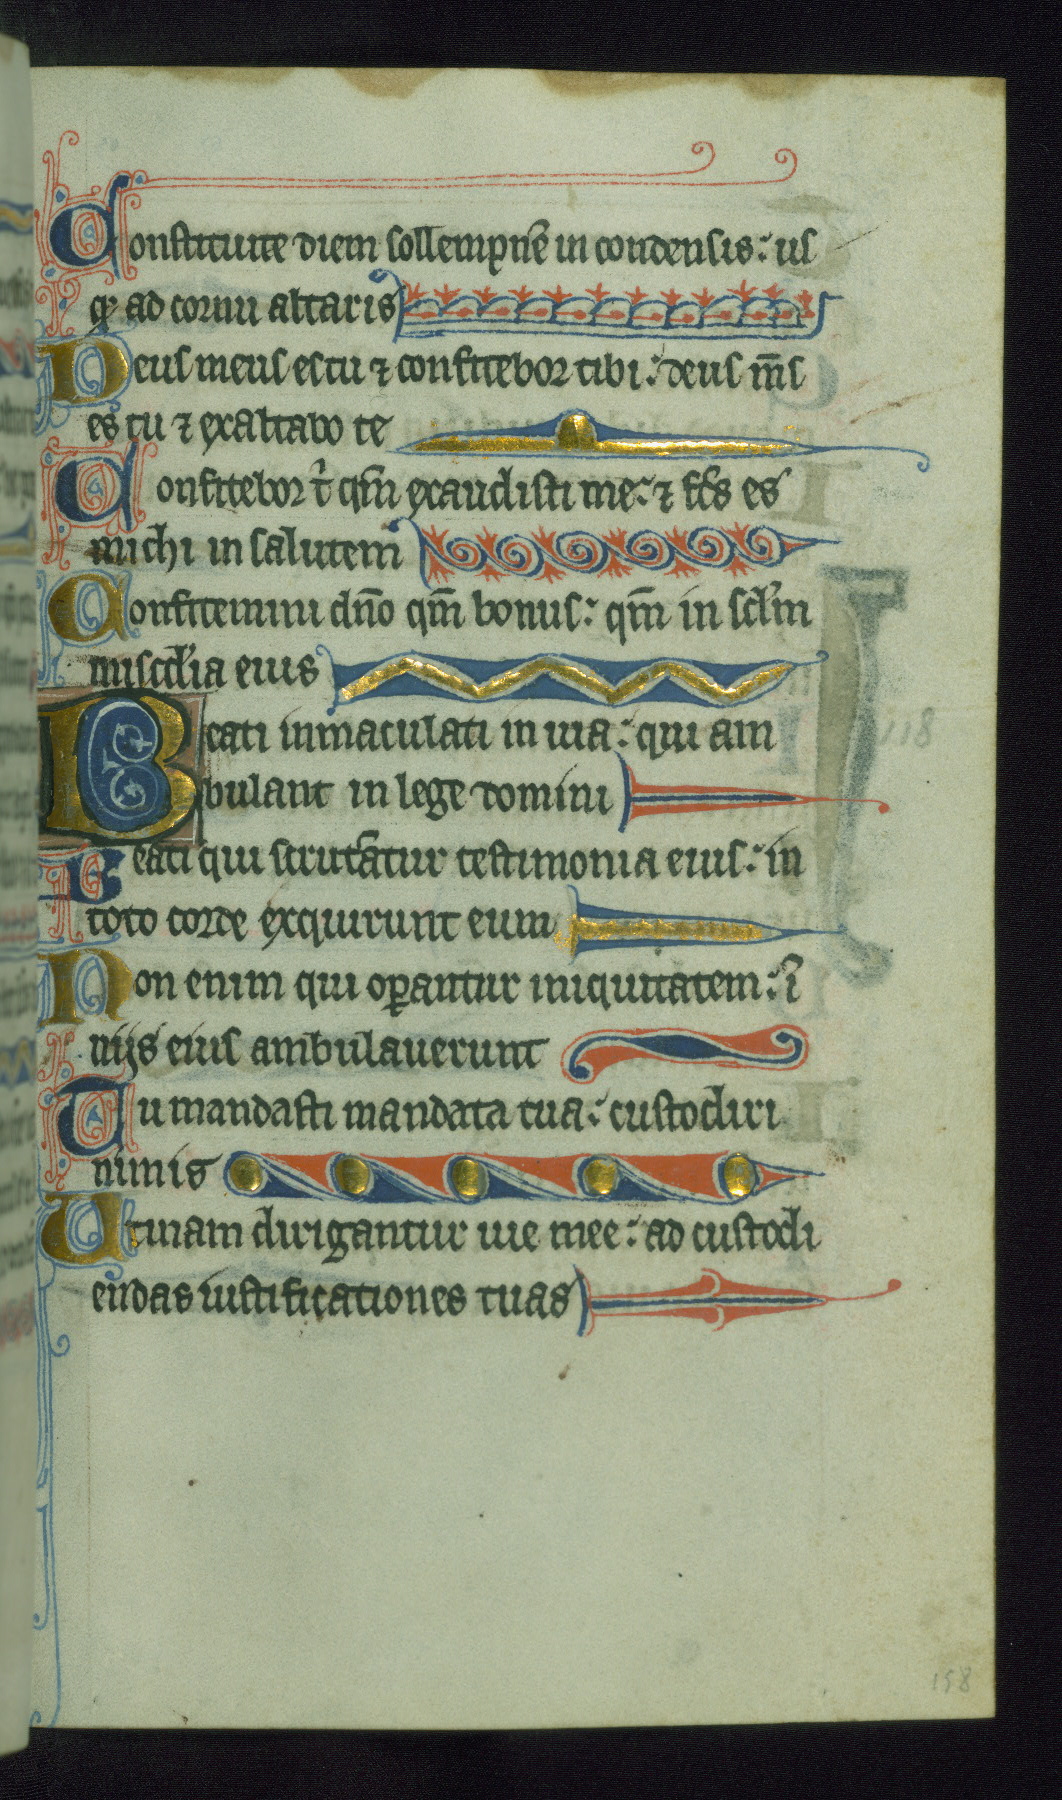 Constituite diem sollempnē in condensis: us
qȝ ad cornu altaris
Deus meus es tu ⁊ confitebor tibi: deus m̅s
es tu ⁊ exaltabo te
Confitebor t̄ qm̄ exaudisti me: ⁊ f̄c̄s es
michi in salutem
Confitemini dn̄o qm̄ bonus: qm̄ in sclm̄
misc̄dia eius
Beati inmaculati in uia: qui am
bulant in lege domini
Beati qui scrutātur testimonia eius: in
toto corde exquirunt eum
Non enim qui oꝑantur iniquitatem: ī
uiis eius ambulauerunt
Tu mandasti mandata tua: custodiri
nimis
Utinam dirigantur uie mee: ad custodi
endas iustificationes tuas
118
158